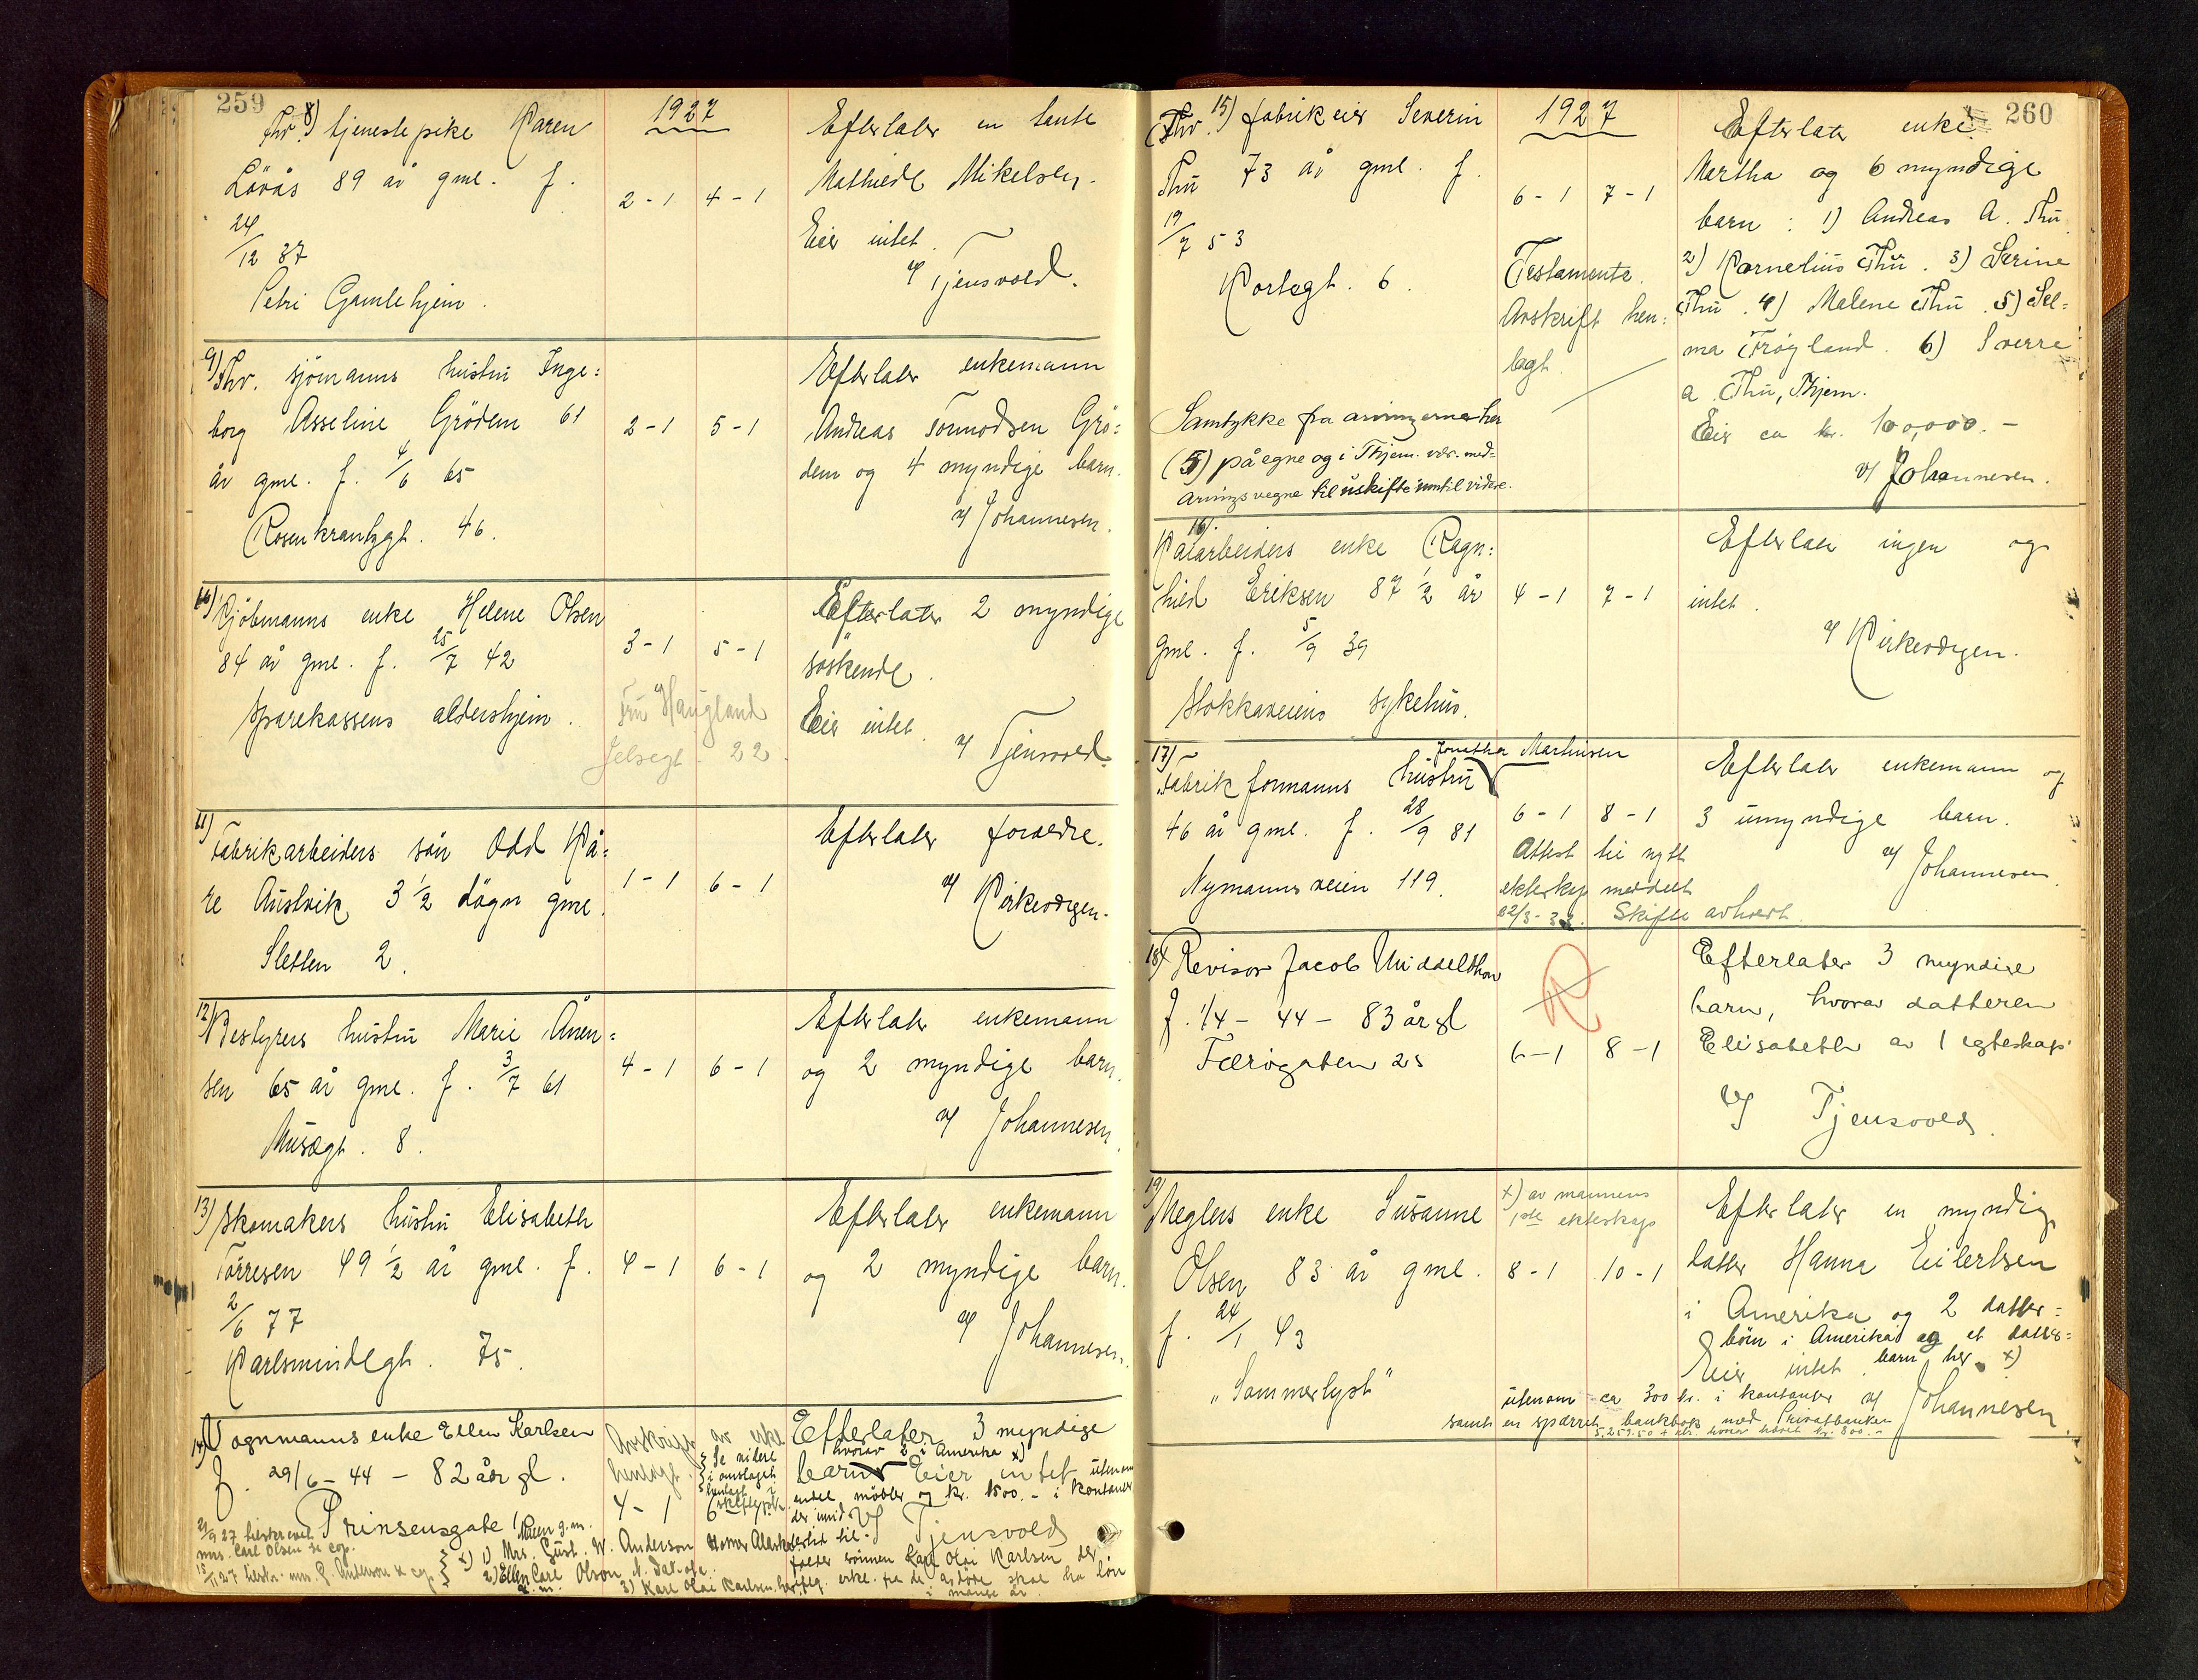 259
1927
8) Fhv. tjenestepike Karen
Löväs 89 år gml. f.
24/12 37
Petri Gamlehjem.
2-1 4-1
Efterlater en tante
Mathilde Mikelsen.
Eier intet.
v/ Tjensvold.
9) Fhv. sjömanns hustru Inge=
borg Asseline Grödem 61
år gml. f. 4/6 65
Rosenkrantzgt. 46.
2-1 5-1
Efterlater enkemann
Andreas Tormodsen Grö=
dem og 4 myndige barn.
v/ Johannesen.
10) Kjöbmanns enke Helene Olsen
84 år gml. f. 25/7 42
Sparekassens aldershjem.
3-1 5-1
Fru Haugland
Jelsegt. 22.
Efterlater 2 myndige
söskende.
Eier intet.
v/ Tjensvold.
11) Fabrikarbeiders sön Odd Kå=
re Austvik 3 1/2 dögn gml.
Sletten 2.
1-1 6-1
Efterlater foreldre.
v/ Kirkevergen.
12) Bestyrers hustru Marie Ånen=
sen 65 år gml. f. 3/7 61
Musegt. 8.
4-1 6-1
Efterlater enkemann
og 2 myndige barn.
v/ Johannesen.
13) Skomakers hustru Elisabeth
Törresen 49 1/2 år gml. f.
2/6 77
Karlsmindegt. 75.
4-1 6-1
Efterlater enkemann
og 2 myndige barn.
v/ Johannesen.
14) Vognmanns enke Ellen Karlsen
f. 29/6 - 44 - 82 år gl.
Prinsensgate 1
Avskrift av
henlagt.
Se videre
i omslaget
henlagt i
4-1 6-1
Efterlater 3 myndige
hvorav 2 i Amerika x)
barn Eier intet utenom
endel möbler og kr. 1500.- i kontanter
v/ Tjensvold
mrs. Carl Olsen se cop.
15/11 27 mrs. G. Anderson
x) 1) Mrs. Gust. W. Anderson
2) Ellen g.m. Carl Olson, N. Dakota.
3) Karl Olai Karlsen, her
sönnen Karl Olai Karlsen
skal ha lön
i mange år.
260
1927
15) Fhv. fabrikeier Severin
Thu 73 år gml. f.
19/7 53
Kortegt. 6.
6-1 7-1
Testamente.
Avskrift hen=
lagt.
Samtykke fra arvingerne her
(5) på egne og i Thjem. vær. med=
arvings vegne til uskifte inntil videre.
Efterlater enke
Martha og 6 myndige
barn: 1) Andreas A. Thu
2) Kornelius Thu. 3) Serine
Thu. 4) Malene Thu. 5) Sel=
ma Tröyland. 6) Sverre
a. Thu, Thjem.
Eier ca kr. 100,000.-
v/ Johannesen.
16) Kaiarbeiders enke Ragn=
hild Eriksen 87 1/2 år
gml. f. 5/9 39
Stokkaveiens sykehus.
4-1 7-1
Efterlater ingen og
intet.
v/ Kirkevergen.
17) Fabrikformanns hustru Jonetha Martinsen
46 år gml. f. 28/9 81
Nymannsveien 119.
6-1 8-1
Attest til nytt
ekteskap meddelt
22/3-33. Skifte avholdt.
Efterlater enkemann og
3 umyndige barn.
v/ Johannesen.
18) Revisor Jacob Middelthon
f. 1/4 - 44 - 83 år gl
Færögaten 25
6-1 8-1
Efterlater 3 myndige
barn, hvorav datteren
Elisabeth av 1 egteskap
v/ Tjensvold.
19) Meglers enke Susanne
Olsen 83 år gml.
f. 24/1 43
"Sommerlyst"
x) av mannens
1ste ekteskap
8-1 10-1
Efterlater en myndig
datter Hanna Eilertsen
i Amerika og 2 datter=
börn i Amerika og et datter=
barn her x)
Eier intet
utenom ca 300 kr. i kontanter v/ Johannesen
samt en sparret bankbok med Privatbanken